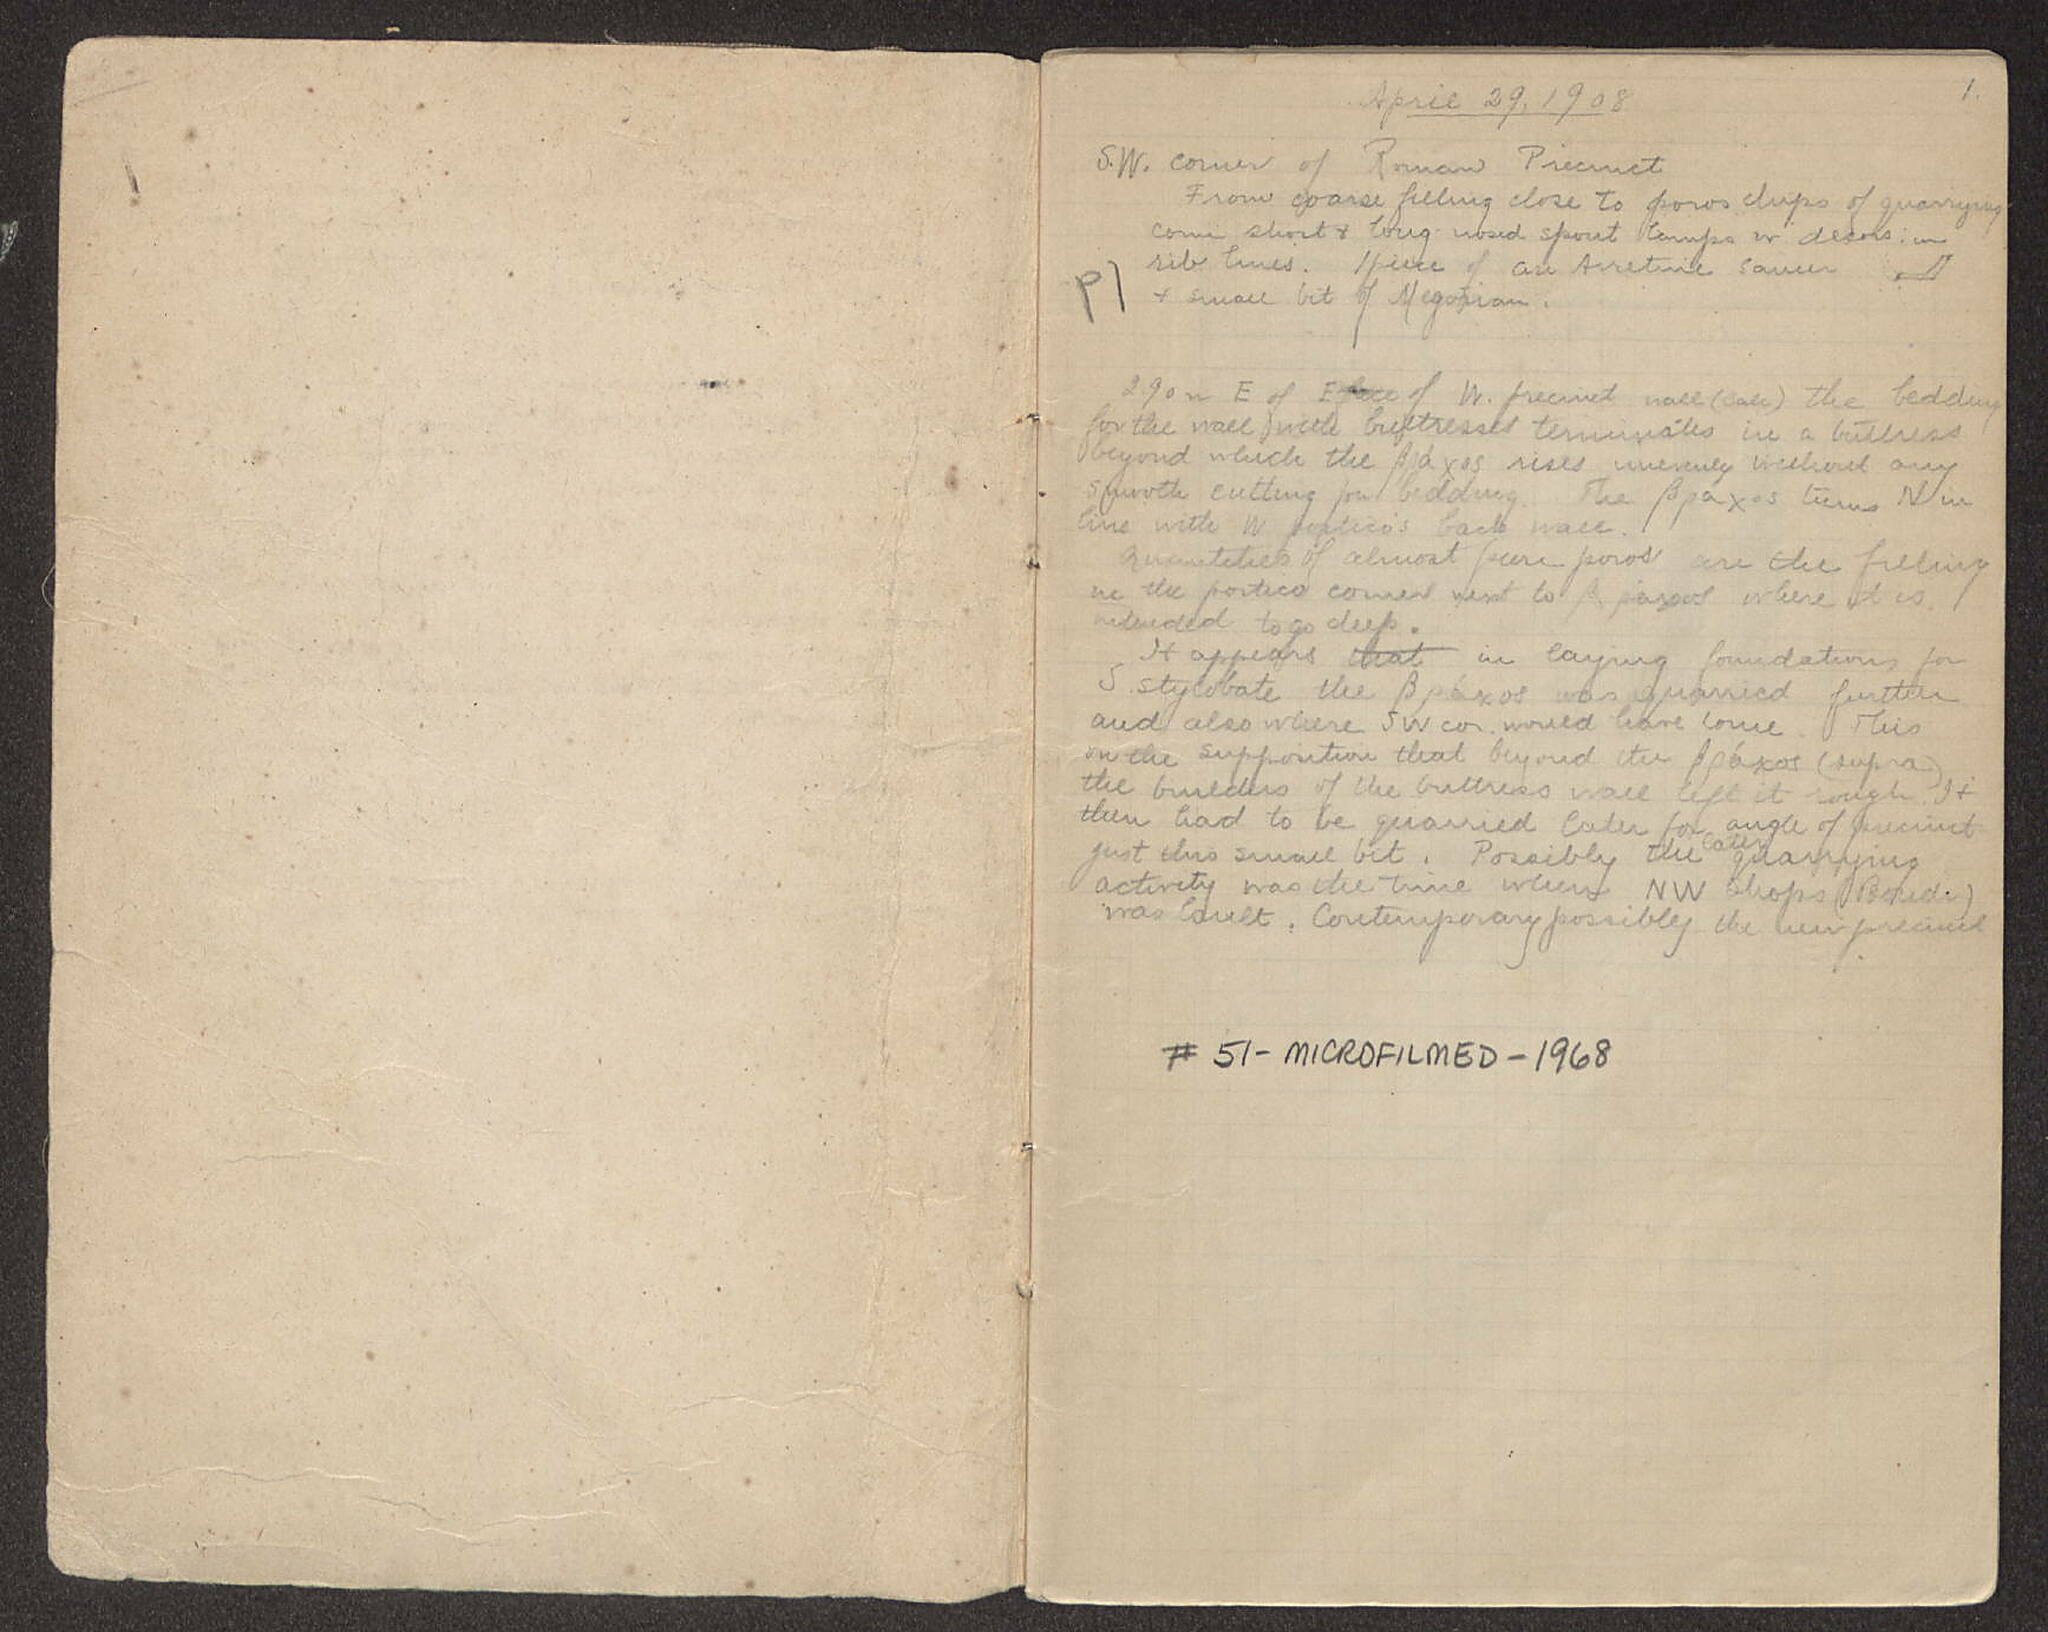 1.
April 29, 1908
S.W. corner of Roman Precinct
From coarse filling close to poros chips of quarrying
come short & long nosed spout lamps w decors. in
rib lines. 1 piece of an Arretine saucer
P1
& small bit of Megarian.
2.90 m E of E face of W. precinct wall (late) the bedding
for the wall with buttresses terminates in a buttress
beyond which the βράχος rises unevenly without any
smooth cutting for bedding. The βράχος turns N in
line with W portico's back wall.
Quantities of almost pure poros are the filling
in the portico corner next to βράχος where it is
intended to go deep.
It appears that in laying foundations for
S. stylobate the βράχος was quarried further
and also where SW cor. would have come. This
on the supposition that beyond the βράχος (supra)
the builders of the buttress wall left it rough. It
then had to be quarried later for angle of precinct
just this small bit. Possibly the later quarrying
activity was the time when NW Shops
was built. Contemporary possibly the new precinct
# 51- MICROFILMED - 1968